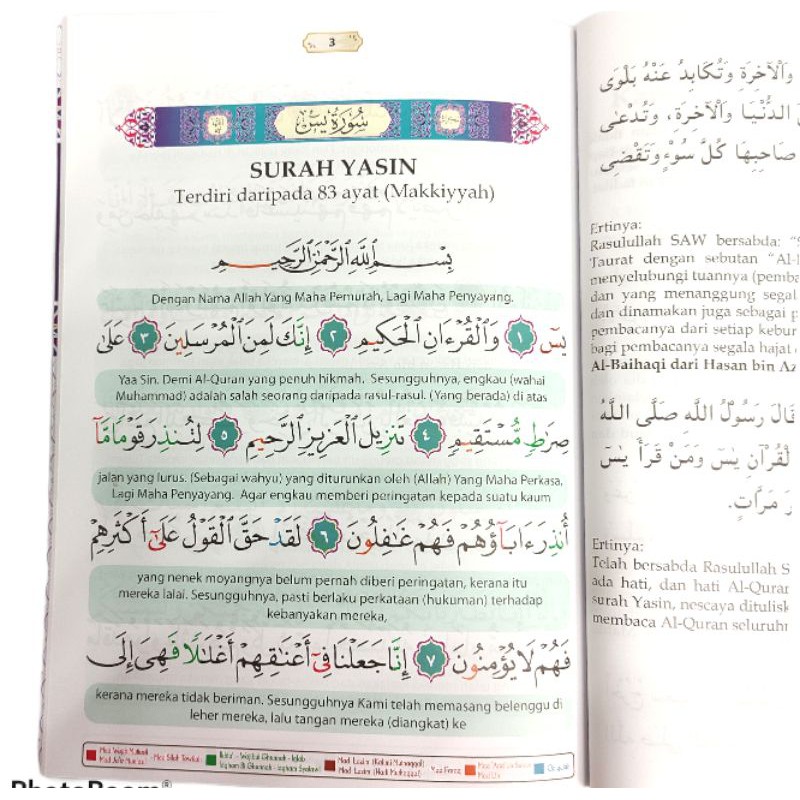 3
سُورَةُ يسٓ
SURAH YASIN
Terdiri daripada 83 ayat (Makkiyyah)
بِسْمِ ٱللَّهِ ٱلرَّحْمَٰنِ ٱلرَّحِيمِ
Dengan Nama Allah Yang Maha Pemurah, Lagi Maha Penyayang.
يسٓ ١ وَٱلْقُرْءَانِ ٱلْحَكِيمِ ٢ إِنَّكَ لَمِنَ ٱلْمُرْسَلِينَ ٣ عَلَىٰ
Yaa Sin. Demi Al-Quran yang penuh hikmah. Sesungguhnya, engkau (wahai
Muhammad) adalah salah seorang daripada rasul-rasul. (Yang berada) di atas
صِرَٰطٍ مُّسْتَقِيمٍ ٤ تَنزِيلَ ٱلْعَزِيزِ ٱلرَّحِيمِ ٥ لِتُنذِرَ قَوْمًا مَّآ
jalan yang lurus. (Sebagai wahyu) yang diturunkan oleh (Allah) Yang Maha Perkasa,
Lagi Maha Penyayang. Agar engkau memberi peringatan kepada suatu kaum
أُنذِرَ ءَابَآؤُهُمْ فَهُمْ غَٰفِلُونَ ٦ لَقَدْ حَقَّ ٱلْقَوْلُ عَلَىٰٓ أَكْثَرِهِمْ
yang nenek moyangnya belum pernah diberi peringatan, kerana itu
mereka lalai. Sesungguhnya, pasti berlaku perkataan (hukuman) terhadap
kebanyakan mereka,
فَهُمْ لَا يُؤْمِنُونَ ٧ إِنَّا جَعَلْنَا فِىٓ أَعْنَٰقِهِمْ أَغْلَٰلًا فَهِىَ إِلَى
kerana mereka tidak beriman. Sesungguhnya Kami telah memasang belenggu di
leher mereka, lalu tangan mereka (diangkat) ke
وَالْآخِرَةِ وَتُكَابِدُ عَنْهُ بَلْوَى
الدُّنْيَا وَالْآخِرَةِ، وَتُدْعَى
صَاحِبِهَا كُلَّ سُوْءٍ وَتَقْضِى
Ertinya:
Rasulullah SAW bersabda:
Taurat dengan sebutan "Al-
menyelubungi tuannya (pemba
dan yang menanggung segal
dan dinamakan juga sebagai p
pembacanya dari setiap kebur
bagi pembacanya segala hajat
Al-Baihaqi dari Hasan bin Az
قَالَ رَسُوْلُ اللَّهِ صَلَّى اللَّهُ
لْقُرْآنِ يٰسٓ وَمَنْ قَرَأَ يٰسٓ
مَرَّاتٍ.
Ertinya:
Telah bersabda Rasulullah S
ada hati, dan hati Al-Qurar
surah Yasin, nescaya ditulisk
membaca Al-Quran seluruhr
PhotoRoom®